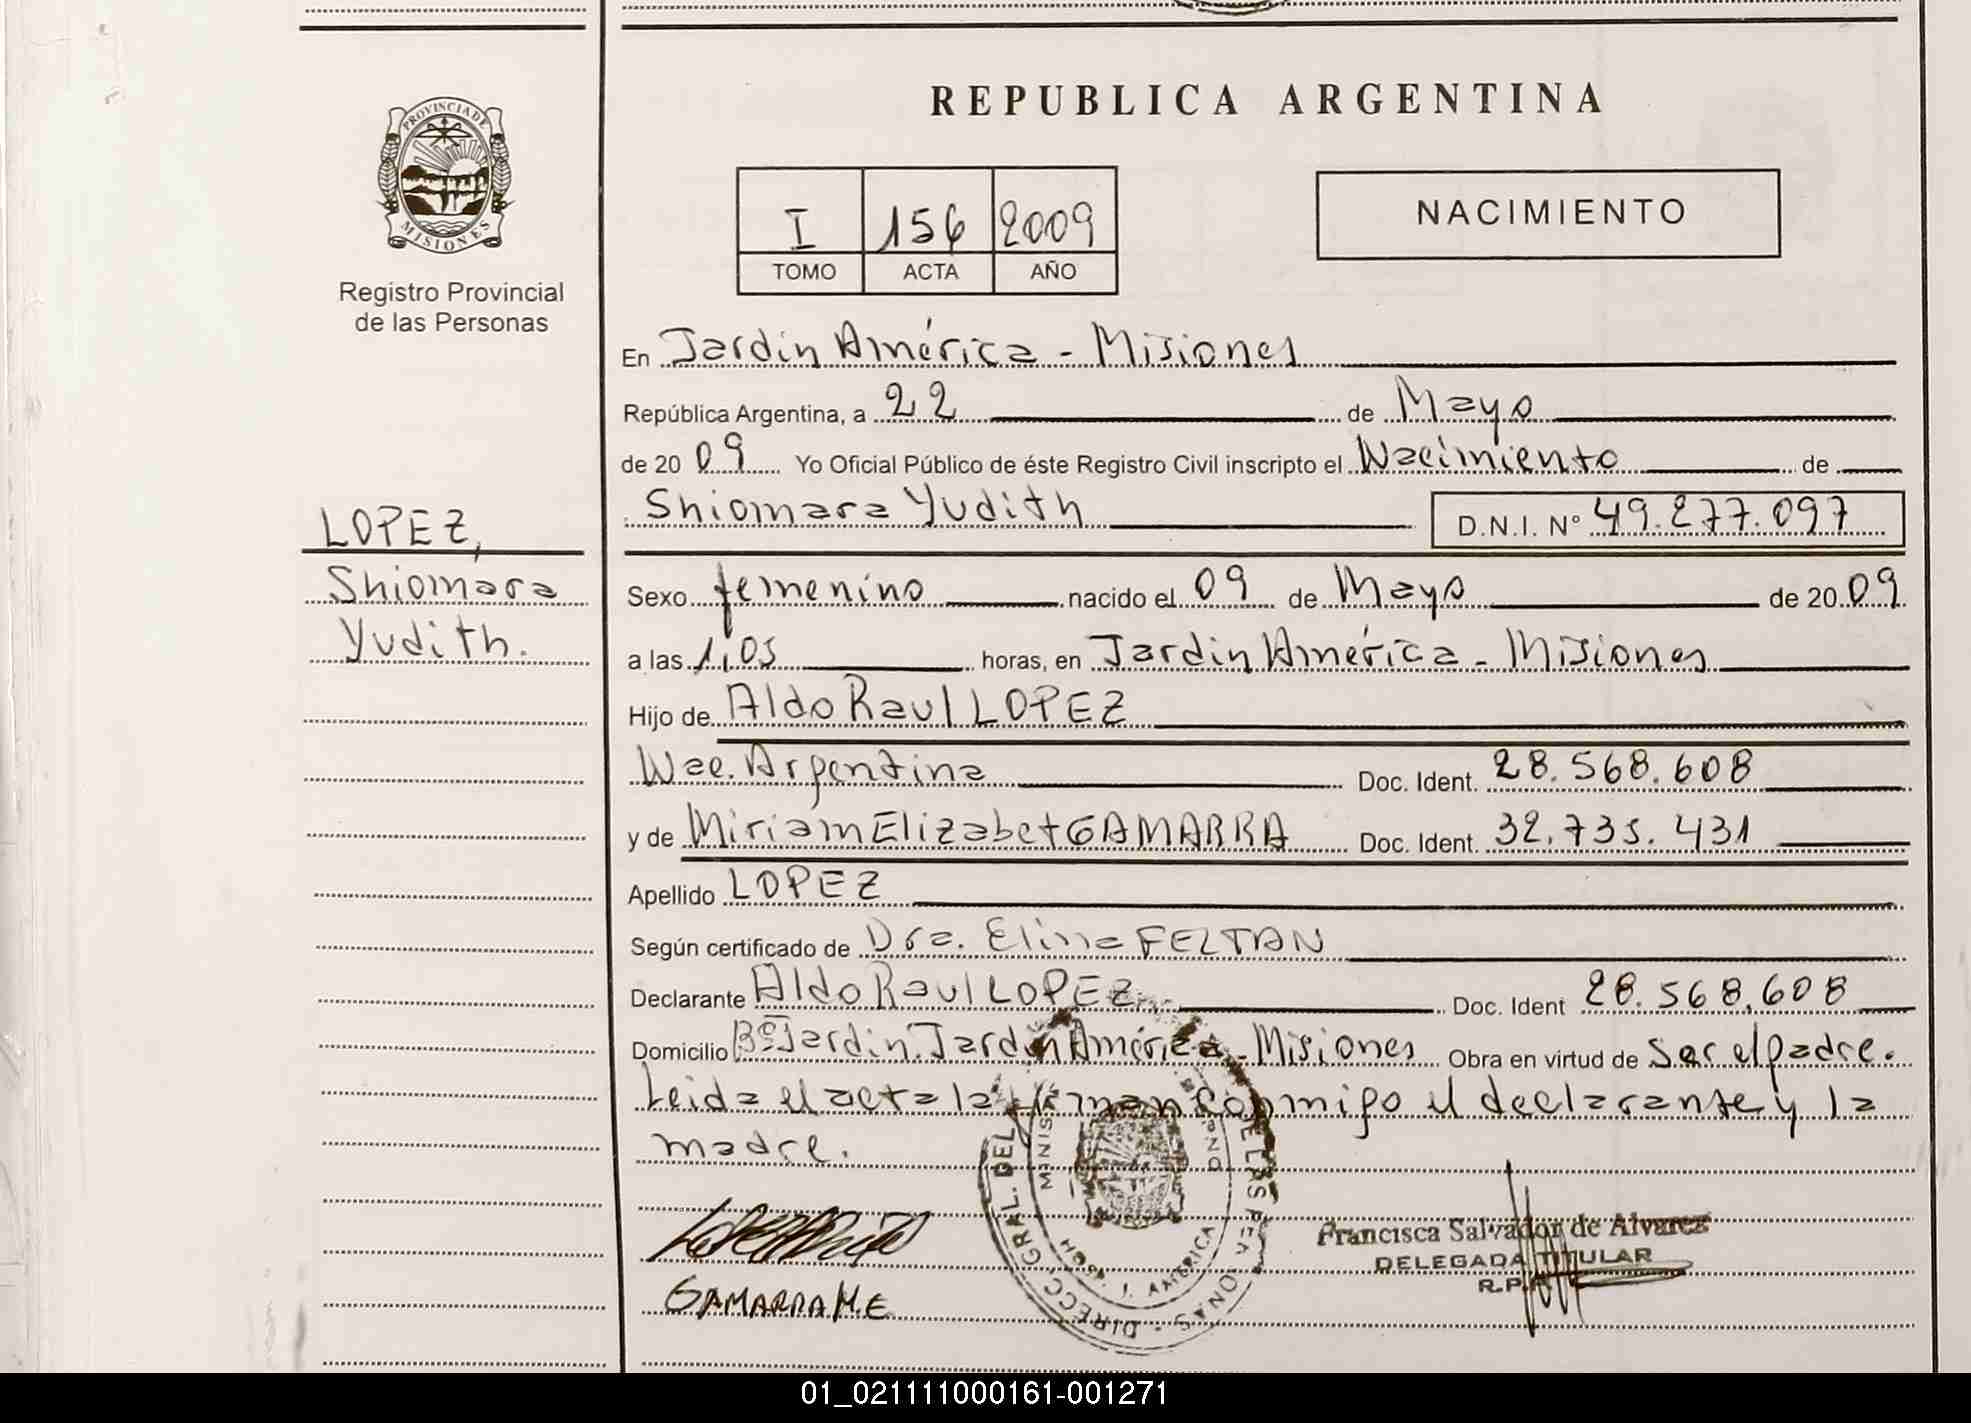 REPUBLICA ARGENTINA
PROVINCIA DE
MISIONES
Registro Provincial
de las Personas
I 156 2009
TOMO ACTA AÑO
NACIMIENTO
En Jardin América - Misiones
República Argentina, a 22 de Mayo
de 20 09 Yo Oficial Público de éste Registro Civil inscripto el Nacimiento de
Shiomara Yudith D.N.I. Nº 49.277.097
LOPEZ,
Shiomara
Yudith.
Sexo femenino nacido el 09 de Mayo de 20 09
a las 1,05 horas, en Jardin América - Misiones
Hijo de Aldo Raul LOPEZ
Nac. Argentina Doc. Ident. 28.568.608
y de Miriam Elizabet GAMARRA Doc. Ident. 32.735.431
Apellido LOPEZ
Según certificado de Dra. Elina FELTAN
Declarante Aldo Raul LOPEZ Doc. Ident 28.568.608
Domicilio Bº Jardin. Jardin América - Misiones Obra en virtud de ser el padre.
Leida el acta la firman conmigo el declarante y la
madre.
GAMARRA M.E
DIRECC. GRAL. DEL DE LAS PERSONAS
MINIS
HOSP. J. AMERICA
Francisca Salvador de Alvarez
DELEGADA TITULAR
R.P.
01_021111000161-001271